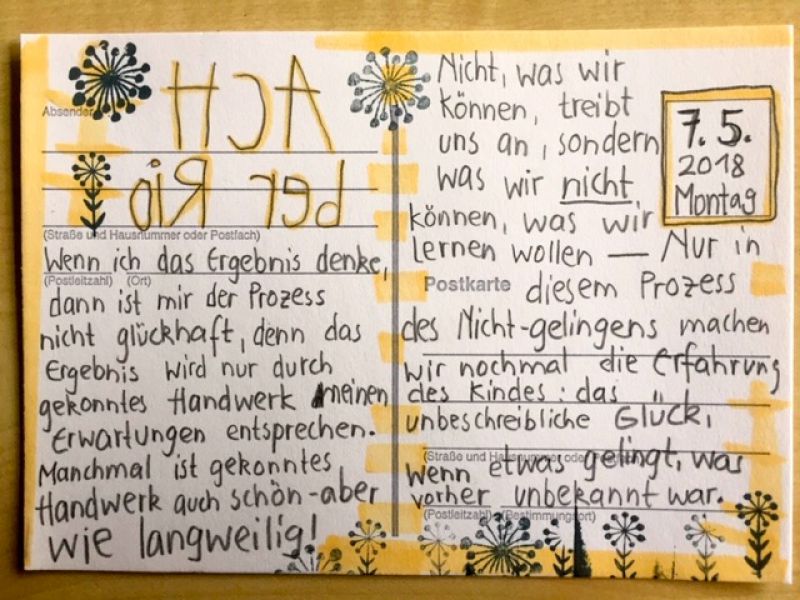 Absender
ACH
ber Rio
(Straße und Hausnummer oder Postfach)
Wenn ich das Ergebnis denke,
(Postleitzahl) (Ort)
dann ist mir der Prozess
nicht glückhaft, denn das
Ergebnis wird nur durch
gekonntes Handwerk meinen
Erwartungen entsprechen.
Manchmal ist gekonntes
Handwerk auch schön - aber
wie langweilig!
Nicht, was wir
können, treibt
uns an, sondern
was wir nicht
können, was wir
lernen wollen — Nur in
7. 5.
2018
Montag
Postkarte
diesem Prozess
des Nicht-gelingens machen
wir nochmal die Erfahrung
des Kindes: das
unbeschreibliche Glück,
(Straße und Hausnummer oder
wenn etwas gelingt, was
vorher unbekannt war.
(Postleitzahl) (Bestimmungsort)